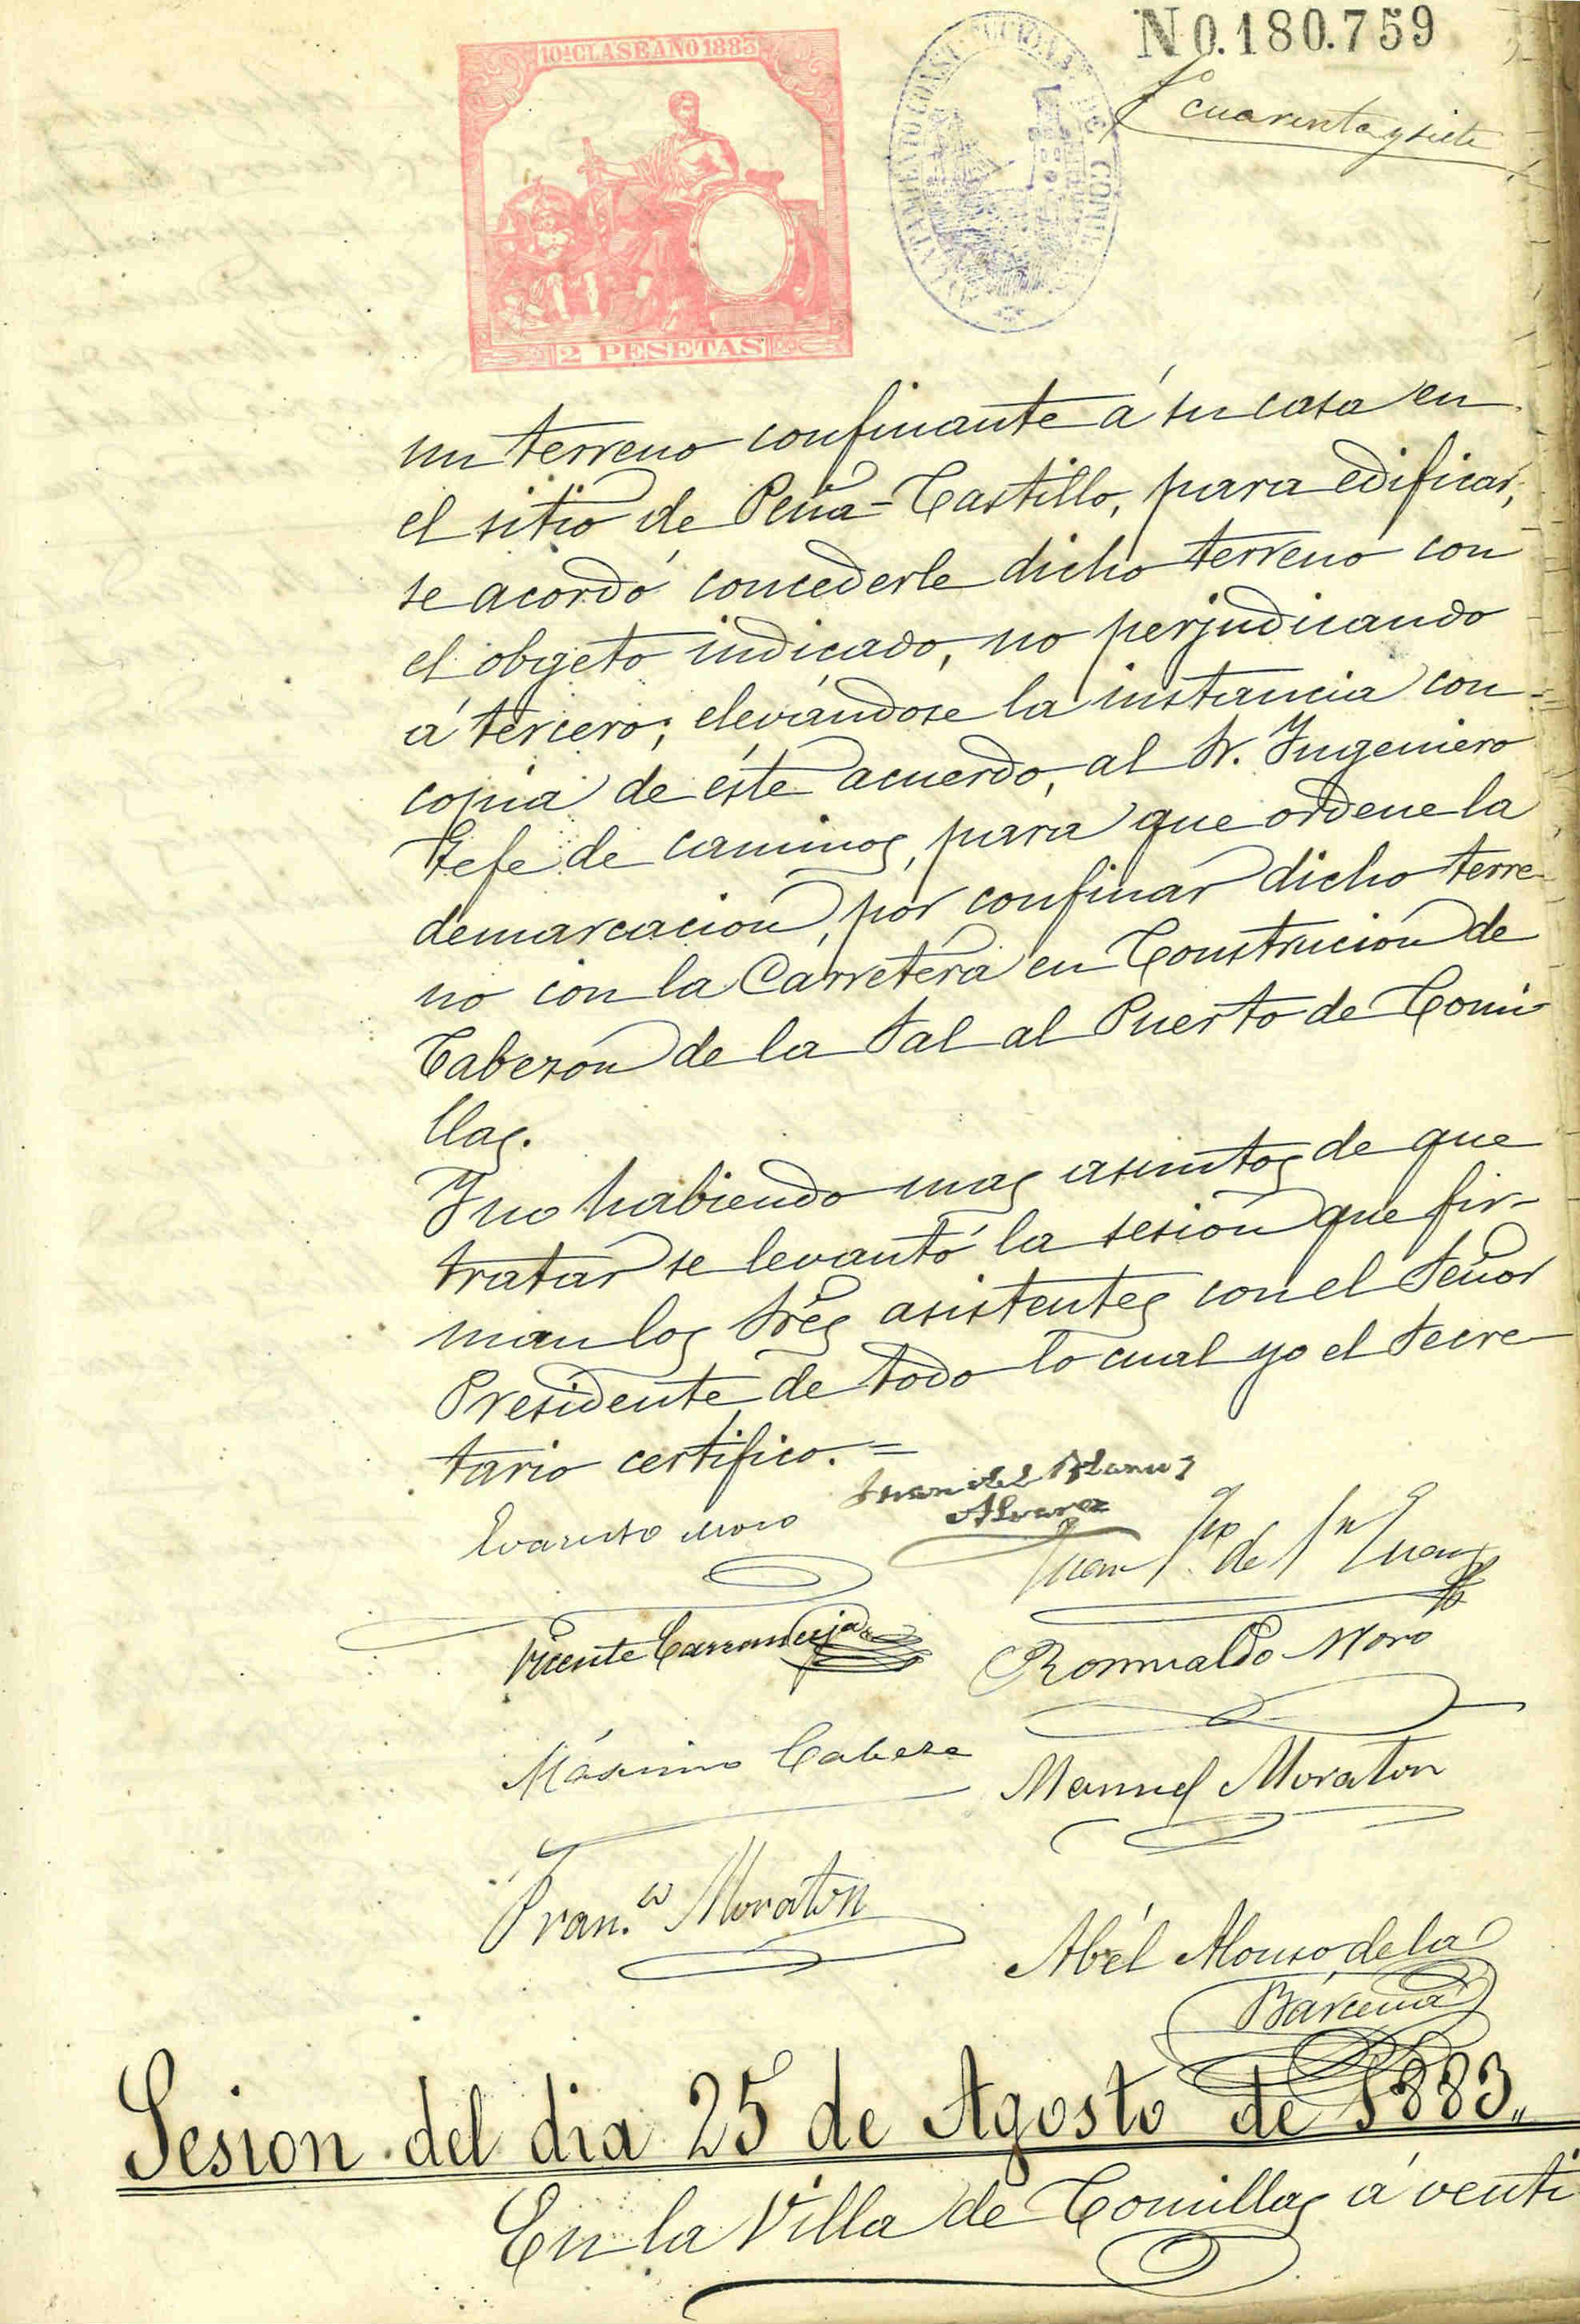 N 0.180.759
10ª CLASE AÑO 1883
AYUNTAMIENTO CONSTITUCIONAL DE COMILLAS
cuarenta y siete
2 PESETAS
un terreno confinante á su casa en
el sitio de Peña=Castillo, para edificar,
se acordó concederle dicho terreno con
el obgeto indicado, no perjudicando
á tercero; elevándose la instancia con
copia de éste acuerdo, al Sr. Ingeniero
Gefe de caminos, para que ordene la
demarcacion, por confinar dicho terre-
no con la Carretera en Construcion de
Cabezón de la Sal al Puerto de Comi-
llas.
Y no habiendo mas asuntos de que
tratar se levantó la sesión que fir-
man los Sres asistentes con el Señor
Presidente de todo lo cual yo el Secre-
tario certifico. =
Evaristo Moro
Juan del
Alvarez
Juan Fco de Sn Juan
Vicente
Romualdo Moro
Máximo Cabeza
Manuel Moraton
Fran.co Moraton
Abél Alonso de la
Bárcena
Sesion del dia 25 de Agosto de 1883.,
En la Villa de Comillas á venti-